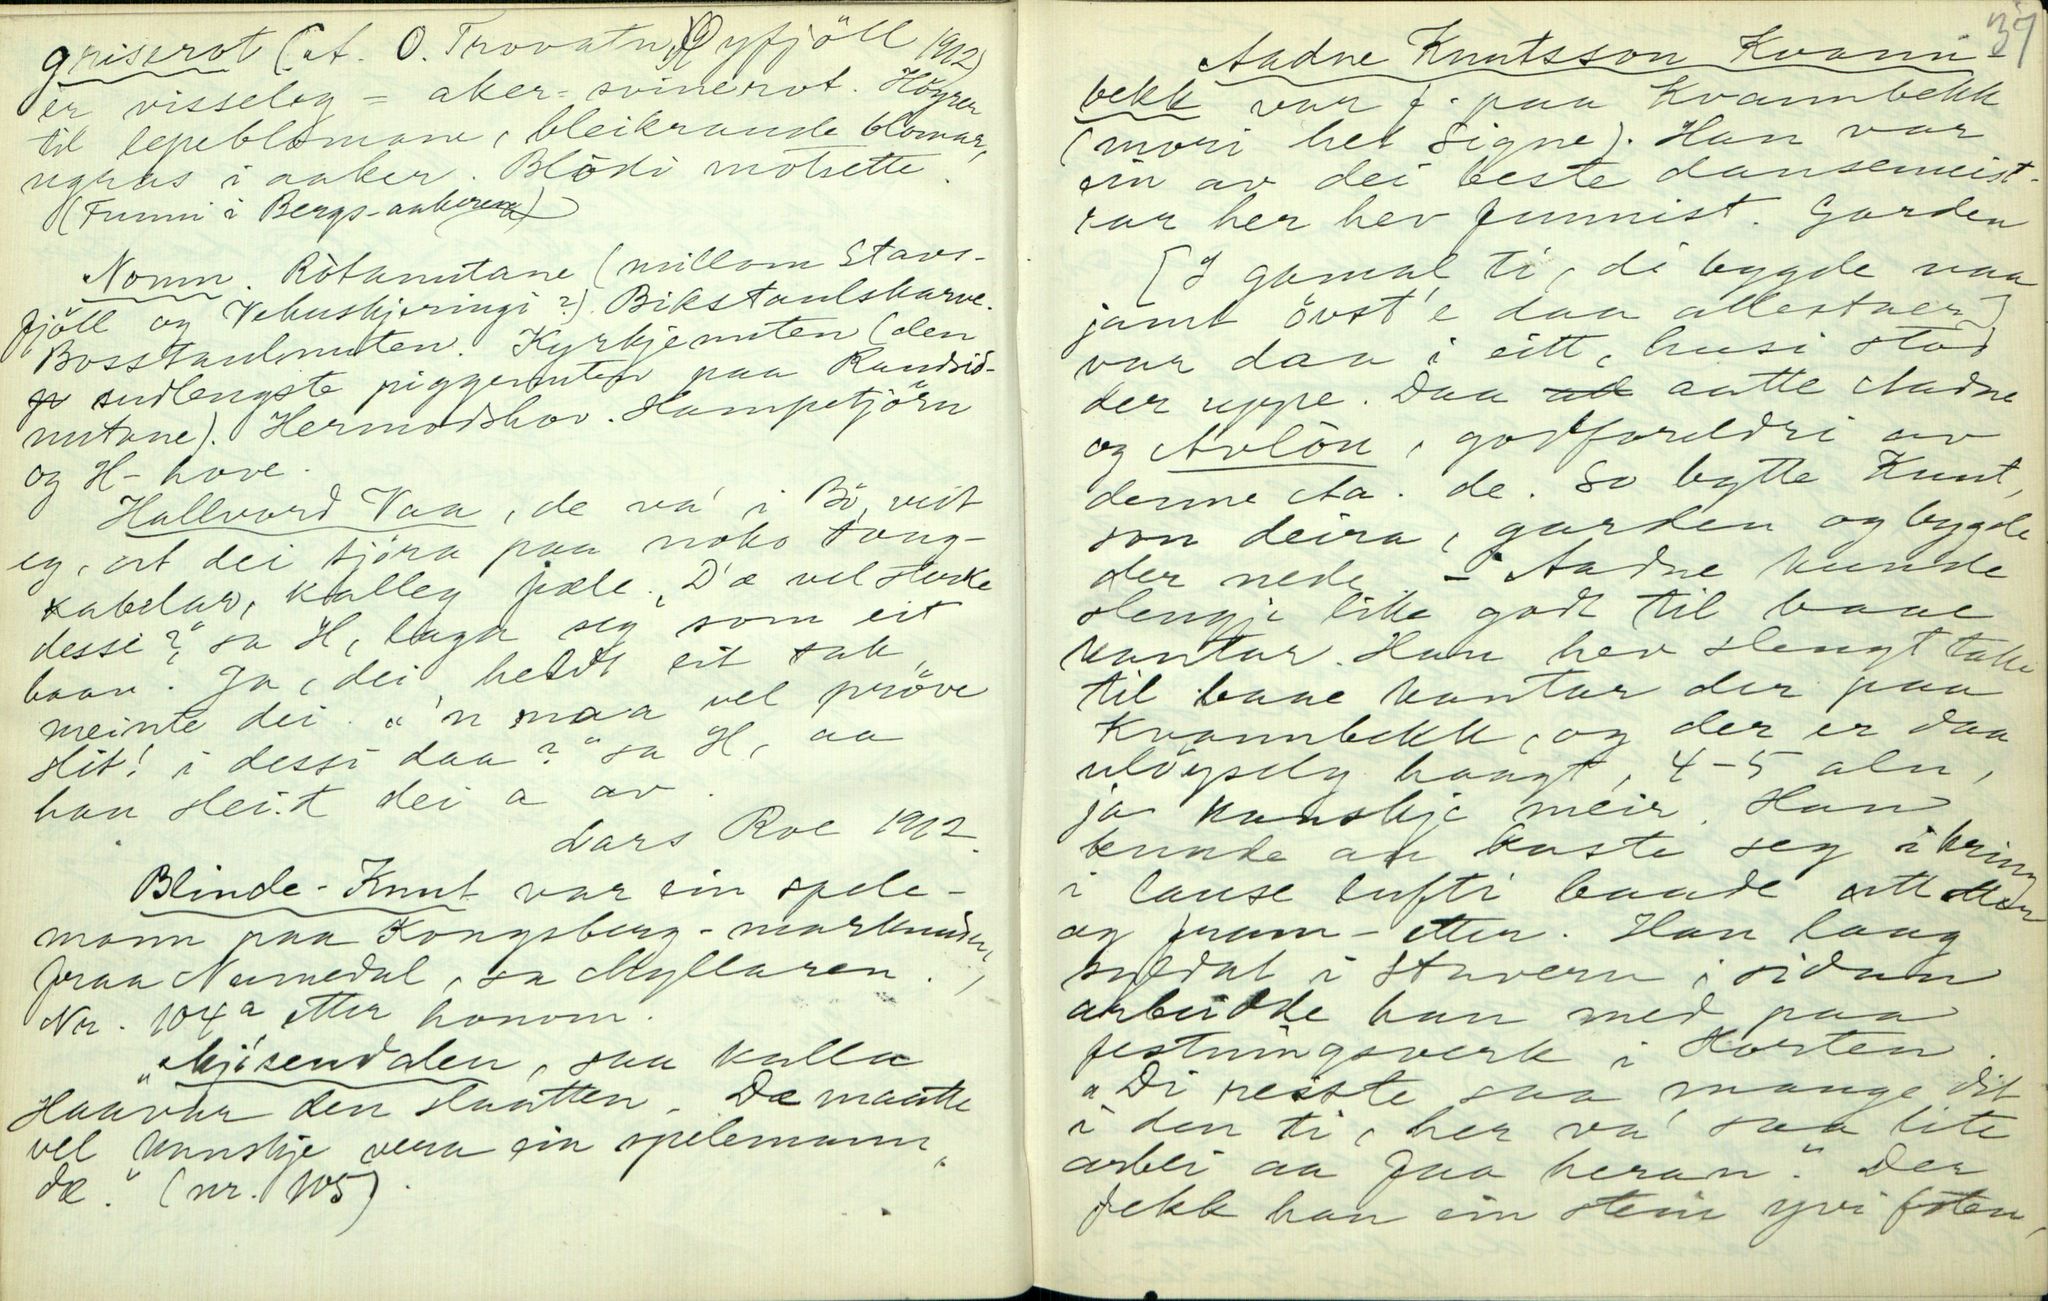 griserot (et. O. Trovatn, Öyfjöll 1912)
er visseleg = aker-svinerot. Höyrer
til lepeblomane, bleikraude blomar,
ugras i aaker. Blödi motsette.
(Funni i Bergs-aakeren)
Nomn. Ròtanutane (millom Stavs-
fjöll og Vehuskjeringi?). Bikstaulskarve.
Bosstaulnuten. Kyrkjenuten (den
sudlengste piggenuten paa Raudsid-
nutane). Hermodshov. Hampetjörn
og H-hove.
Hallvord Vaa, de va' i Bö, veit
eg, at dei kjöra paa noko taug-
kabelar, kalleg pæle. "D'æ vel sterke
dessi?" sa H, laga seg som eit
baan. Ja, dei heldt eit tak,
meinte dei. "'n maa vel pröve
slit! i dessi daa?" sa H, aa
han slei.t dei a av.
Lars Roe 1912.
Blinde-Knut var ein spele-
mann paa Kongsberg-marknaden,
fraa Numedal, sa Myllaren.
Nr. 104a etter honom.
"Mjösendalen, saa kalla
Haavar den slaatten. Dæ maatte
vel kanskje vera ein spelemann,
dæ." (nr. 105).
37
Aadne Knutsson Kvann-
bekk var f. paa Kvannbekk
(mori het Signe). Han var
ein av dei beste dansemeist-
rar her hev funnist. Garden
[I gamal ti, di bygde naa
jamt övst'e daa allestaer]
var daa i eitt, husi stod
der uppe. Daa aatte Aadne
og Avlòu, godforeldri av
denne Aa. de. So bytte Knut,
son deira, garden og bygde
der nede. – Aadne kunde
slengje like godt til baae
kantar. Han hev slengt take
til baae kantar der paa
Kvannbekk, og der er daa
ulöyseleg haagt, 4-5 aln,
ja kanskje meir. Han
kunde au kaste seg ikring
i lause lufti baade atterr
og fram-etter. Han laag
soldat i Stavern, sidan
arbeidde han med paa
festningsverk i Horten.
"Di reiste saa mange dit
i den ti, her va' saa lite
arbei aa faa heran". Der
fekk han ein stein yvi foten,